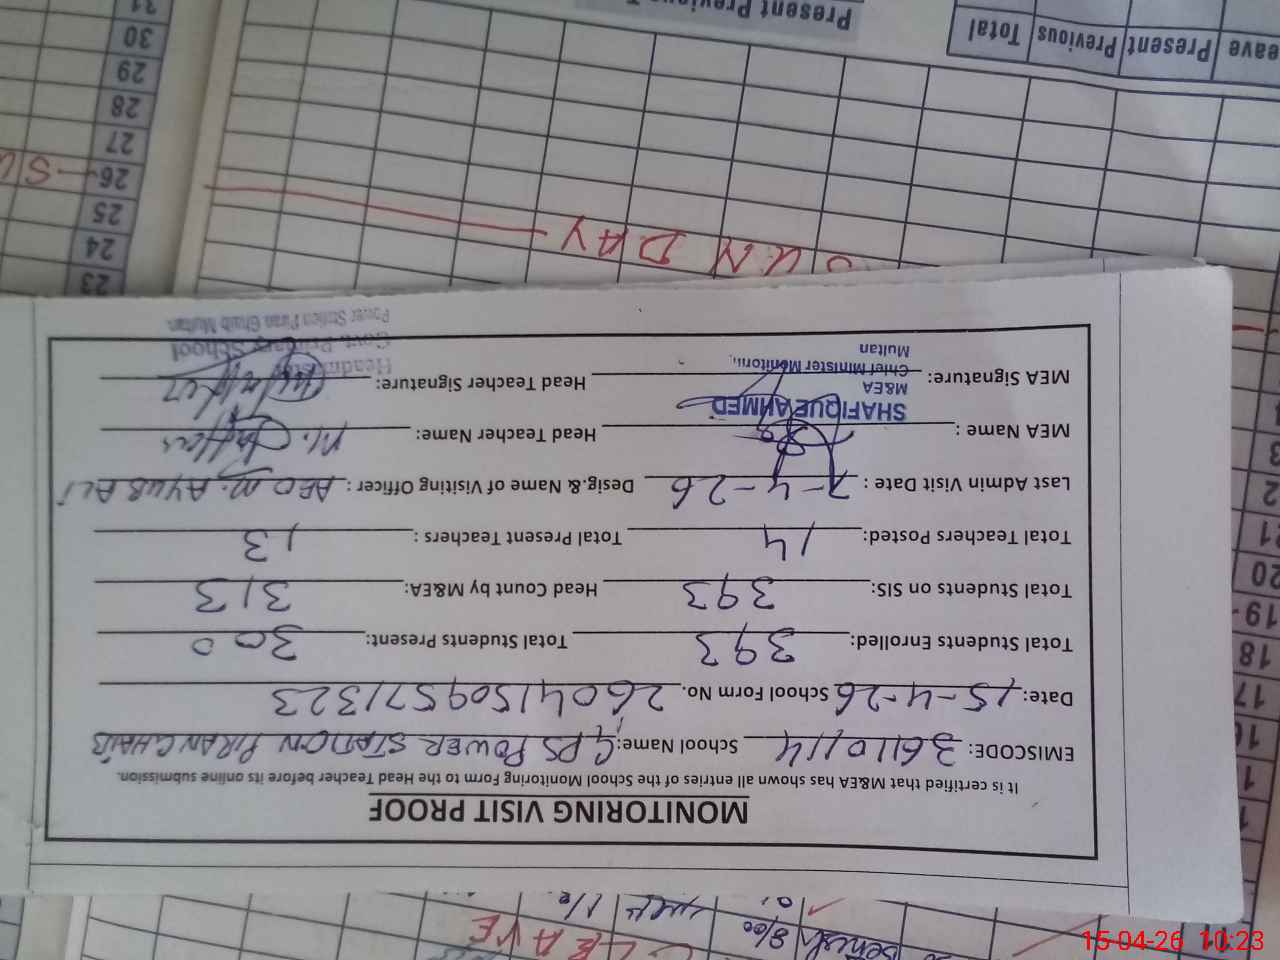 MONITORING VISIT PROOF
It is certified that M&EA has shown all entries of the School Monitoring Form to the Head Teacher before its online submission.
EMISCODE: 36110114 School Name: GPS POWER STATION PIRAN GHAIB
Date: 15-4-26 School Form No. 26041509571323
Total Students Enrolled: 393 Total Students Present: 300
Total Students on SIS: 393 Head Count by M&EA: 313
Total Teachers Posted: 14 Total Present Teachers : 13
Last Admin Visit Date : 7-4-26 Desig.& Name of Visiting Officer : AEO M. AYUB ALI
MEA Name : Head Teacher Name: M.
SHAFIQUE AHMED
M&EA
MEA Signature: Head Teacher Signature:
Chief Minister
Multan
Headmaster
Govt. Primary School
Power Station Piran Ghaib Multan
SUNDAY
Leave Present Previous Total
Present Previous
23
24
25
26
27
28
29
30
31
LEAVE
17
18
19
20
21
15-04-26 10:23